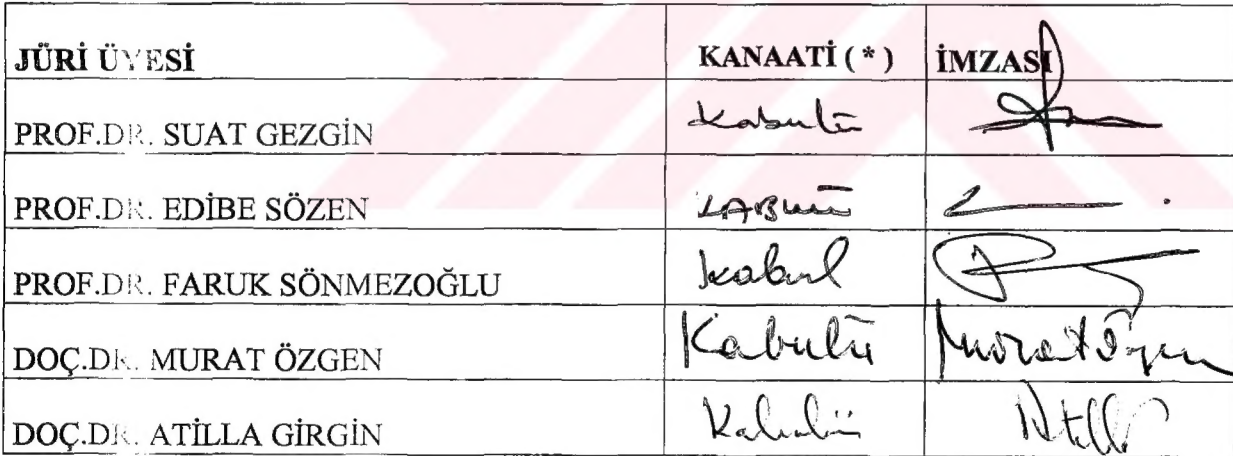 JÜRİ ÜYESİ KANAATİ ( * ) İMZASI
PROF.DR. SUAT GEZGİN Kabulü
PROF.DR. EDİBE SÖZEN KABulü
PROF.DR. FARUK SÖNMEZOĞLU kabul
DOÇ.DR. MURAT ÖZGEN Kabulü Murat Özgen
DOÇ.DR. ATİLLA GİRGİN Kabulü